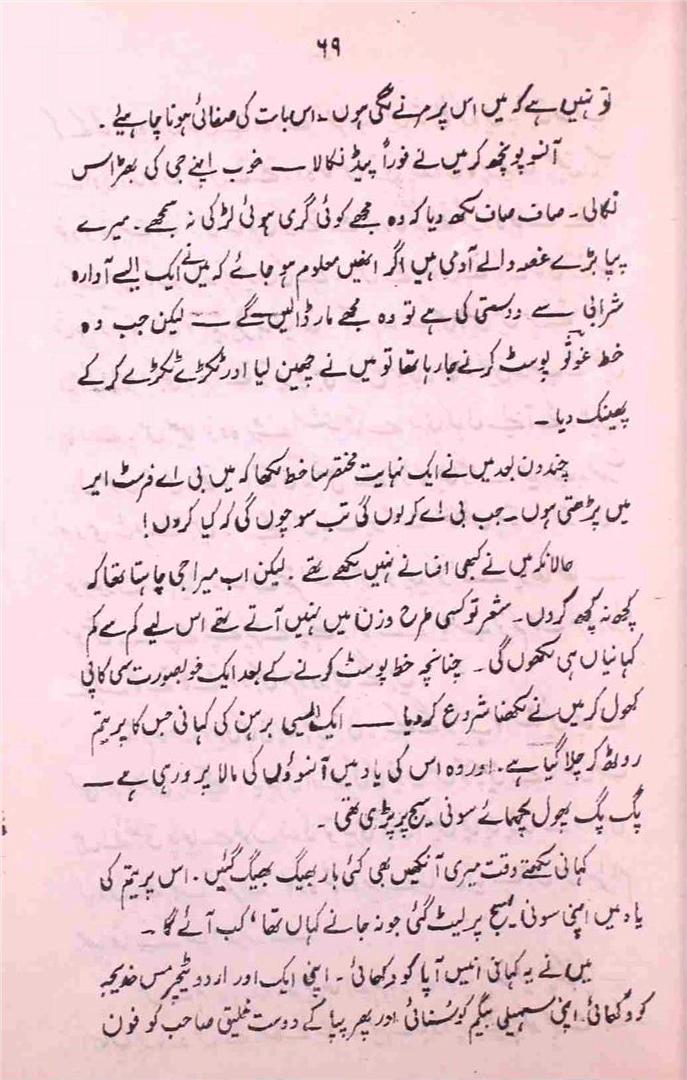 ۶۹
تو نہیں ہے کہ میں اس پر مرنے لگی ہوں۔ اس بات کی صفائی ہونا چاہیے۔
آنسو پونچھ کر میں نے فوراً پیڈ نکالا — خوب اپنے جی کی بھڑاس
نکالی۔ صاف صاف لکھ دیا کہ وہ مجھے کوئی گری ہوئی لڑکی نہ سمجھے۔ میرے
پپا بڑے غصہ والے آدمی ہیں اگر انھیں معلوم ہو جائے کہ میں نے ایک ایسے آوارہ
شرابی سے دوستی کی ہے تو وہ مجھے مار ڈالیں گے — لیکن جب وہ
خط غوثو پوسٹ کرنے جا رہا تھا تو میں نے چھین لیا اور ٹکڑے ٹکڑے کر کے
پھینک دیا۔
چند دن بعد میں نے ایک نہایت مختصر سا خط لکھا کہ میں بی اے فرسٹ ایر
میں پڑھتی ہوں۔ جب بی اے کر لوں گی تب سوچوں گی کہ کیا کروں!
حالانکہ میں نے کبھی افسانے نہیں لکھے تھے۔ لیکن اب میرا جی چاہتا تھا کہ
کچھ نہ کچھ کر دوں۔ شعر تو کسی طرح وزن میں نہیں آتے تھے اس لیے کم سے کم
کہانیاں ہی لکھوں گی۔ چنانچہ خط پوسٹ کرنے کے بعد ایک خوبصورت سی کاپی
کھول کر میں نے لکھنا شروع کر دیا — ایک ایسی برہن کی کہانی جس کا پریتم
روٹھ کر چلا گیا ہے۔ اور وہ اس کی یاد میں آنسوؤں کی مالا پرو رہی ہے —
پگ پگ پھول بچھائے سونی سیج پر پڑی تھی۔
کہانی لکھتے وقت میری آنکھیں بھی کئی بار بھیگ بھیگ گئیں۔ اس پریتم کی
یاد میں اپنی سونی سیج پر لیٹ گئی جو نہ جانے کہاں تھا، کب آئے گا۔
میں نے یہ کہانی انیس آپا کو دکھائی۔ اپنی ایک اور اردو ٹیچر مس خدیجہ
کو دکھائی۔ اپنی سہیلی بیگم کو سنائی اور پھر پپا کے دوست خلیق صاحب کو فون